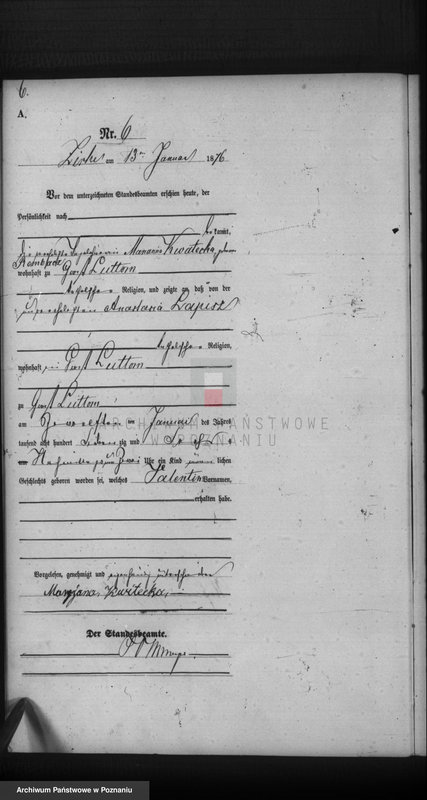 6.
A.
Nr. 6
Zirke am 13ten Januar 1876
Vor dem unterzeichneten Standesbeamten erschien heute, der
Persönlichkeit nach
bekannt,
Kwatecka
wohnhaft zu Gorzt Luttom
katholischer Religion, und zeigte an, daß von der
unverehelichten Anastasia Lapisz
katholischer Religion,
wohnhaft in Gorzt Luttom
zu Gorzt Luttom
am zwoelften ten Januar des Jahres
tausend acht hundert siebenzig und sechs
Nachmittags um zwei Uhr ein Kind männlichen
Geschlechts geboren worden sei, welches Valentin Vornamen,
erhalten habe.
Vorgelesen, genehmigt und
Maryjana Kwatecka
Der Standesbeamte.
ARCHIWUM PAŃSTWOWE
W POZNANIU
Archiwum Państwowe w Poznaniu